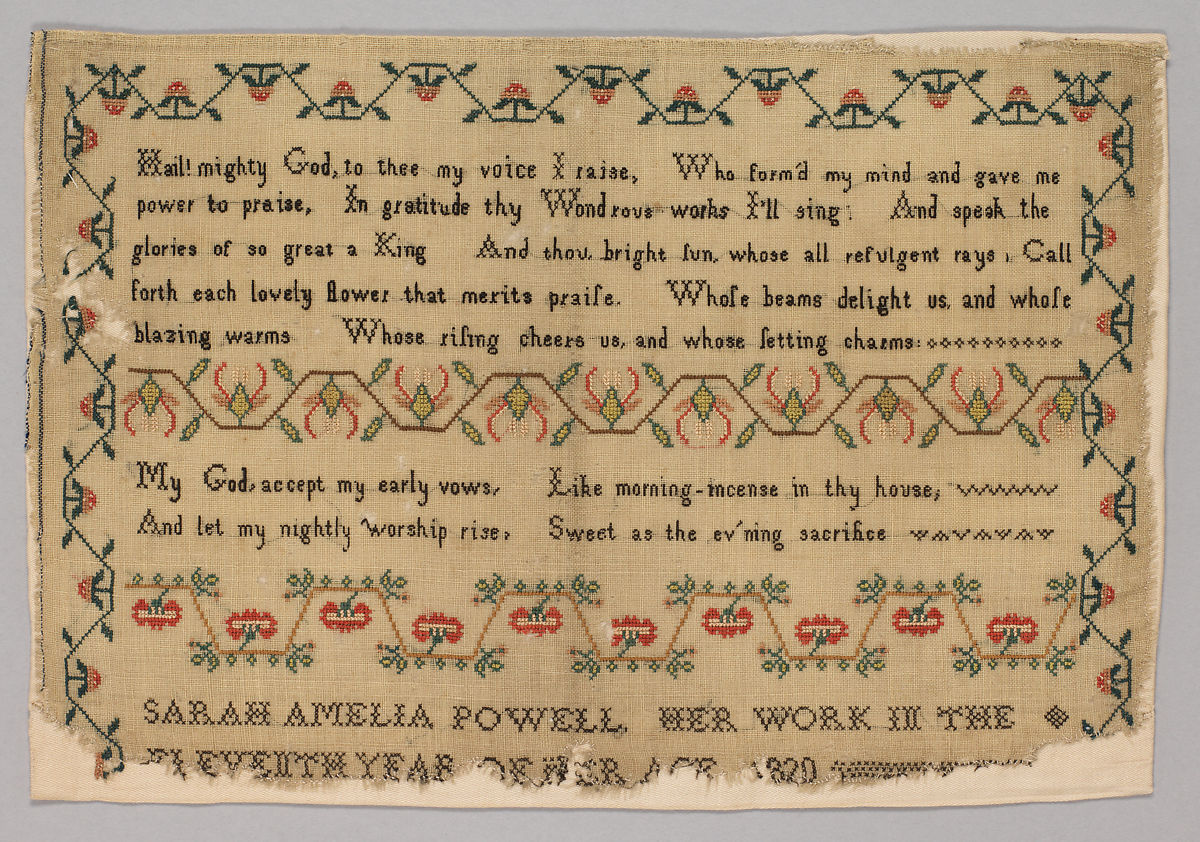 Hail! mighty God, to thee my voice I raise, Who form'd my mind and gave me
power to praise, In gratitude thy Wondrous works I'll sing; And speak the
glories of so great a King And thou, bright ſun, whose all refulgent rays, Call
forth each lovely flower that merits praiſe. Whoſe beams delight us, and whoſe
blazing warms Whose riſing cheers us, and whose ſetting charms:
My God, accept my early vows, Like morning-incense in thy house,
And let my nightly worship rise, Sweet as the ev'ning sacrifice
SARAH AMELIA POWELL, HER WORK IN THE
ELEVENTH YEAR OF HER AGE 1820